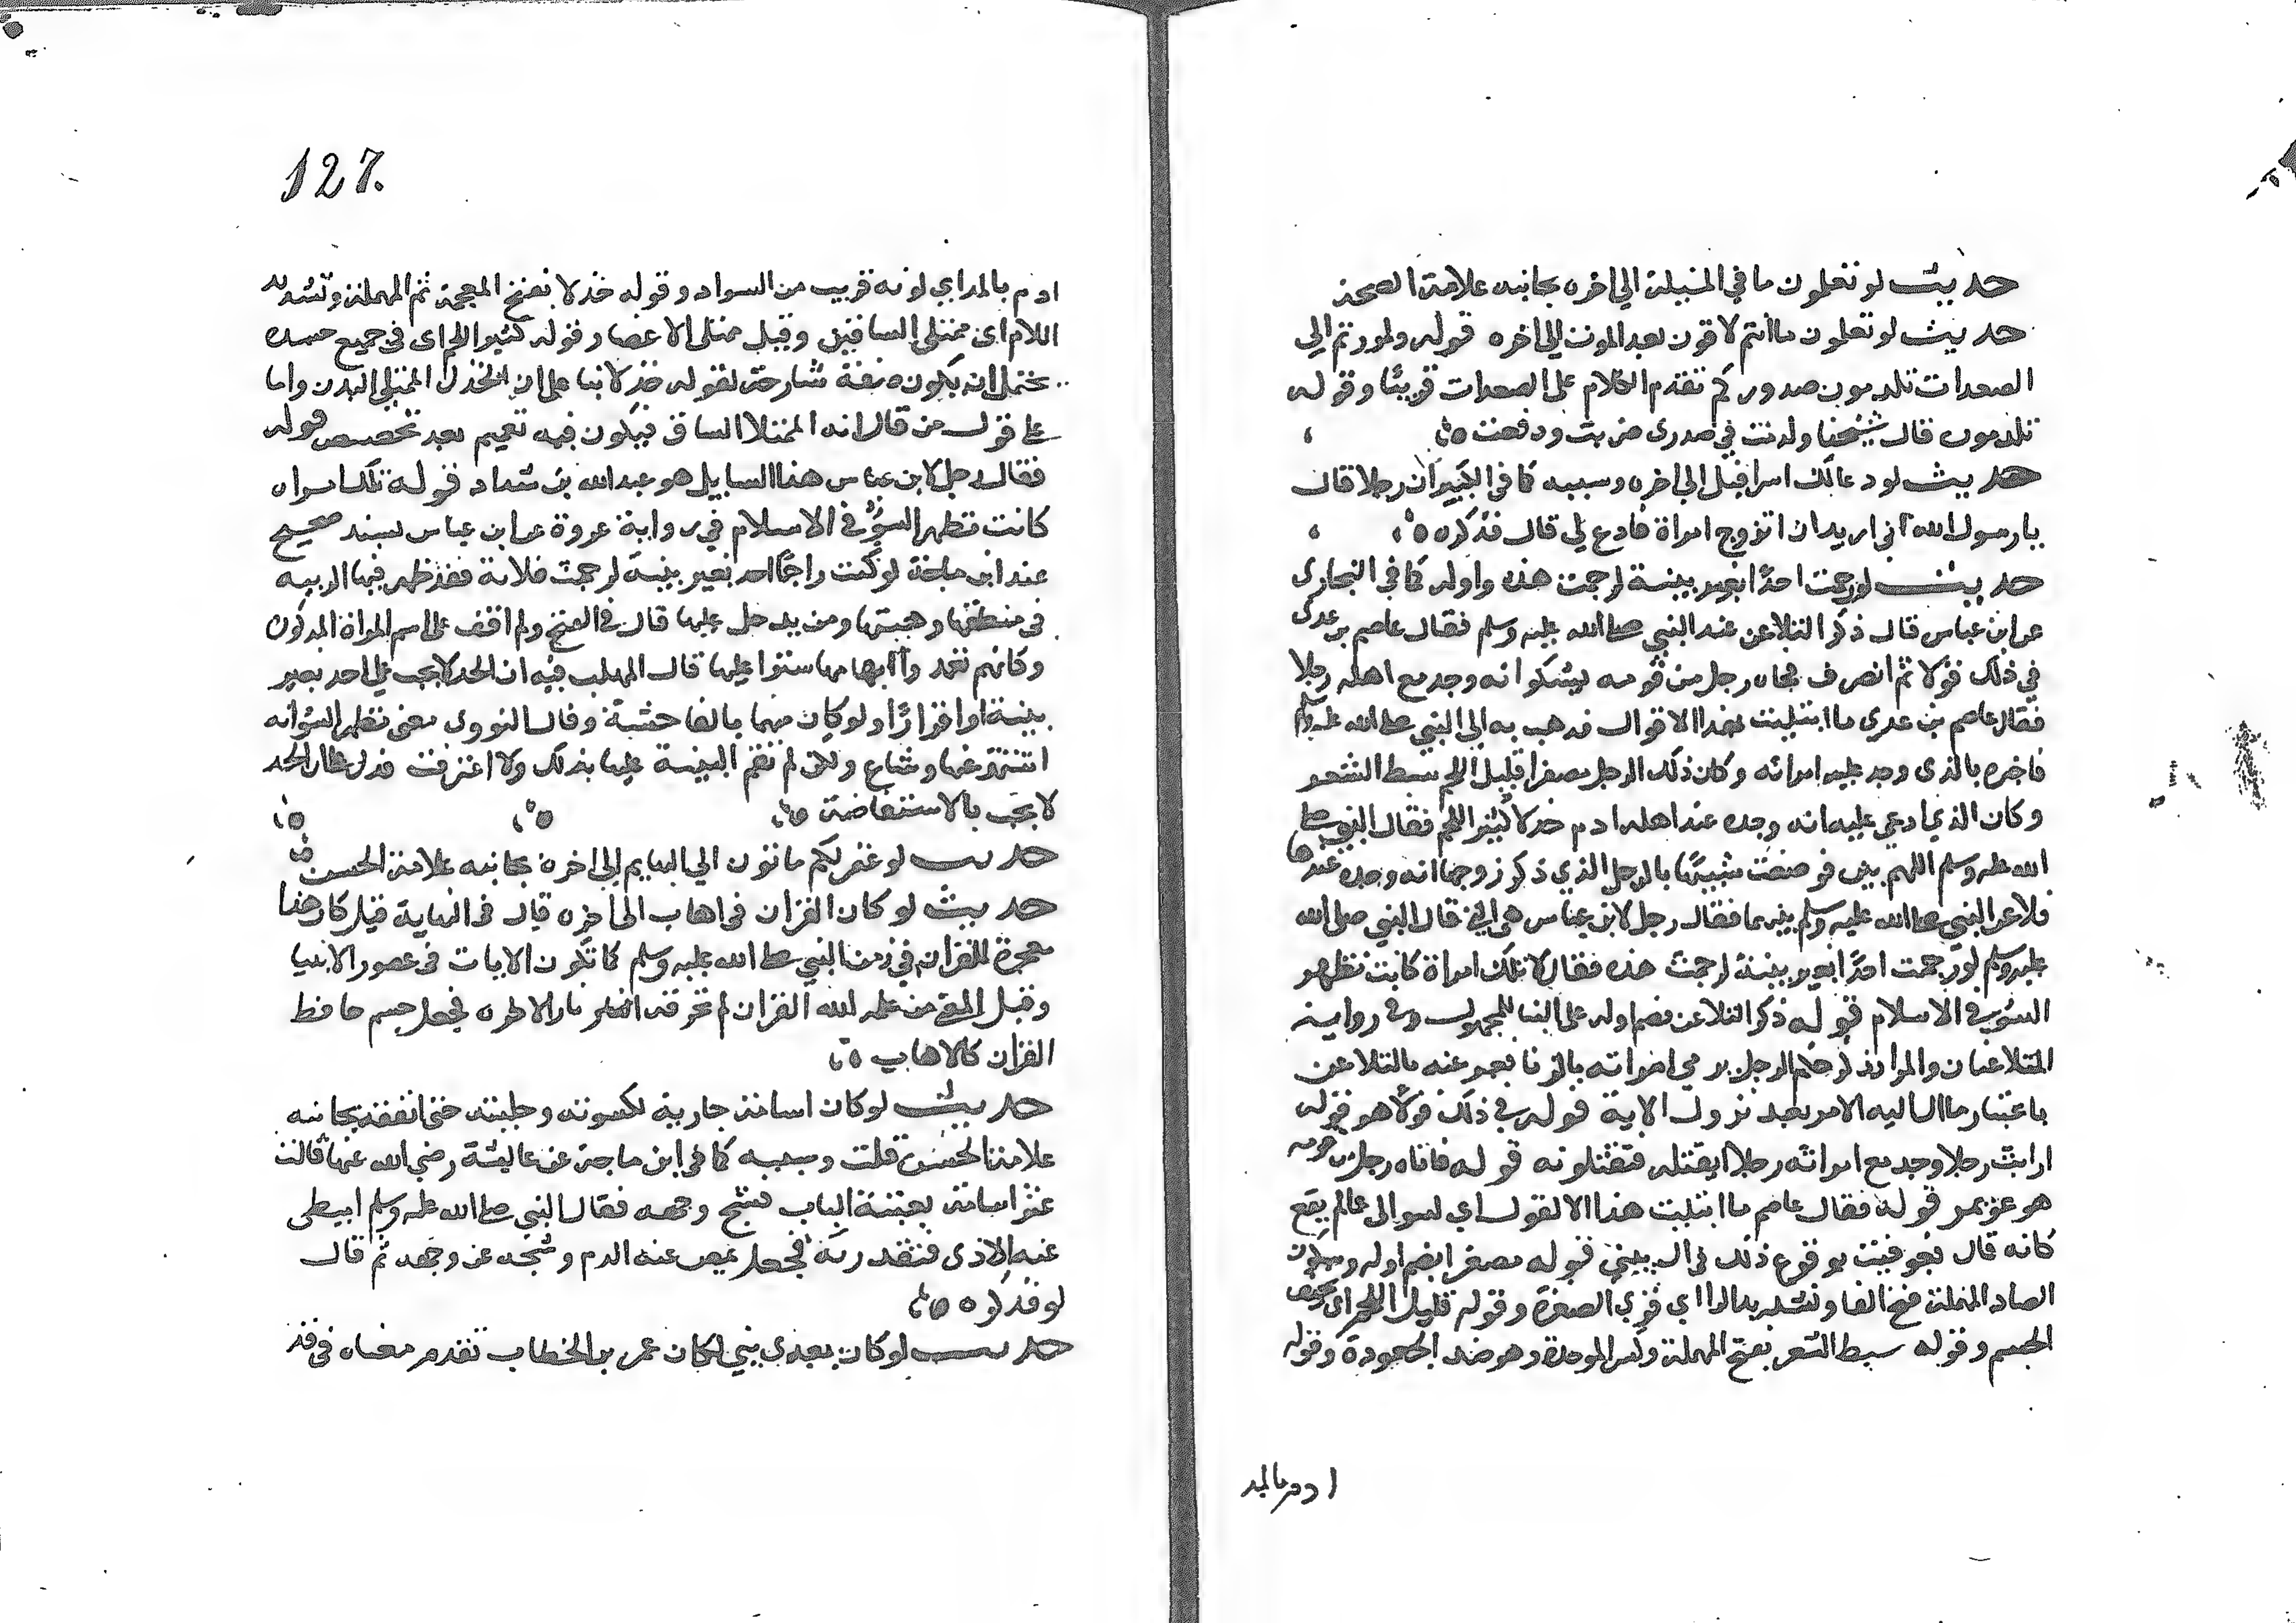 حديث لو تعلمون ما في المسئلة الي اخره بجانبه علامة الصحة
حديث لو تعلمون ما انتم لاقون بعد الموت الي اخره قوله ولمررتم الي
الصعدات تلدمون صدوركم تقدم الكلام على الصعدات قريبًا وقوله
تلدمون قال شيخنا ولدنت في صدري ضربت ودفعت
حديث لو دعا لك اسرافيل الي اخره وسببه كما في الكبير ان رجلا قال
يا رسول الله اني اريد ان اتزوج امراة فادع لي قال فذكره
حديث لو رجمت احدًا بغير بينة لرجمت هذه واوله كما في البخاري
عن ابن عباس قال ذكر التلاعن عند النبي صلى الله عليه وسلم فقال عاصم بن عدى
في ذلك قولا ثم انصرف فجاه رجل من قومه يشكوا انه وجد مع اهله رجلا
فقال عاصم بن عدي ما ابتليت بهذا الا قوال فذهب به الي النبي صلى الله عليه وسلم
فاخبره بالذي وجد عليه امراته وكان ذلك الرجل مصفرا قليل اللحم سبط الشعر
وكان الذي ادعي عليه انه وجده عند اهله ادم خدلا كثير اللحم فقال النبي صلى
الله عليه وسلم اللهم بين فوضعت شبيهًا بالرجل الذي ذكر زوجها انه وجده عندها
فلاعن النبي صلى الله عليه وسلم بينهما فقال رجل لابن عباس هي التي قال النبي صلى الله
عليه وسلم لو رجمت احدًا بغير بينة لرجمت هذه فقال لا تلك امراة كانت تظهر
السوء في الاسلام قوله ذكر التلاعن بضم اوله على البنا للمجهول وفي رواية
المتلاعنان والمراد ذكر حكم الرجل يرمي امراته بالزنا فعبر عنه بالتلاعن
باعتبار ما ال اليه الامر بعد نزول الاية قوله في ذلك قولا هو قوله
ارايت رجلا وجد مع امراته رجلا ايقتله فتقتلونه قوله فاتاه رجل من قومه
هو عويمر قوله فقال عاصم ما ابتليت هذا الا لقولي اي لسوالي عما لم يقع
كانه قال فعوقبت بوقوع ذلك في ال بيتي قوله مصفرا بضم اوله وسكون
الصاد المهملة وفتح الفا وتشديد الرا اي قوي الصفرة وقوله قليل اللحم اي نحيف
الجسم وقوله سبط الشعر بفتح المهملة وكسر الموحدة وهو ضد الجعودة وقوله
ادم بالمد
127
ادم بالمد اي لونه قريب من السواد وقوله خدلا بفتح المعجمة ثم المهملة وتشديد
اللام اي ممتلي الساقين وقيل ممتلي الاعضا وقوله كثير اللحم اي في جميع جسده
يحتمل ان يكون صفة شارحة لقوله خدلا بنا على ان الخدل الممتلي البدن واما
على قول من قال انه الممتلا الساق فيكون فيه تعميم بعد تخصيص قوله
فقال رجل لابن عباس هذا السايل هو عبد الله بن شداد قوله تلك امراه
كانت تظهر السوء في الاسلام في رواية عروة عن ابن عباس بسند صحيح
عند ابن ماجة لو كنت راجمًا احد بغير بينة لرجمت فلانة فقد ظهر فيها الريبة
في منطقها وهيئتها ومن يدخل عليها قال في الفتح ولم اقف على اسم المراة المذكورة
وكانهم تعمدوا ابهامها سترا عليها قال المهلب فيه ان الحد لا يجب علي احد بغير
بينة او اقرارًا ولو كان متهما بالفاحشة وقال النووي معنى تظهر السوء انه
اشتهر عنها وشاع ولكن لم تقم البينة عليها بذلك ولا اعترفت فدل على ان الحد
لا يجب بالاستفاضة
حديث لو غفر لكم ما تون الي البهايم الي اخره بجانبه علامة الحسن
حديث لو كان القران في اهاب الي اخره قال في النهاية قيل كان هذا
معجزة للقران في زمن النبي صلى الله عليه وسلم كما تكون الايات في عصور الانبيا
وقيل المعنى من علمه الله القران لم تحرقه نار الاخرة فجعل جسم حافظ
القران كالاهاب
حديث لو كان اسامة جارية لكسوته وحليته حتى انفقه بجانبه
علامة الحسن قلت وسببه كما في ابن ماجة عن عايشة رضي الله عنها قالت
عثر اسامة بعتبة الباب فشج وجهه فقال النبي صلى الله عليه وسلم اميطي
عنه الاذى فتقذرته فجعل يمص عنه الدم ويمجه عن وجهه ثم قال
لو فذكره
حديث لو كان بعدي نبي لكان عمر بن الخطاب تقدم معناه في قد